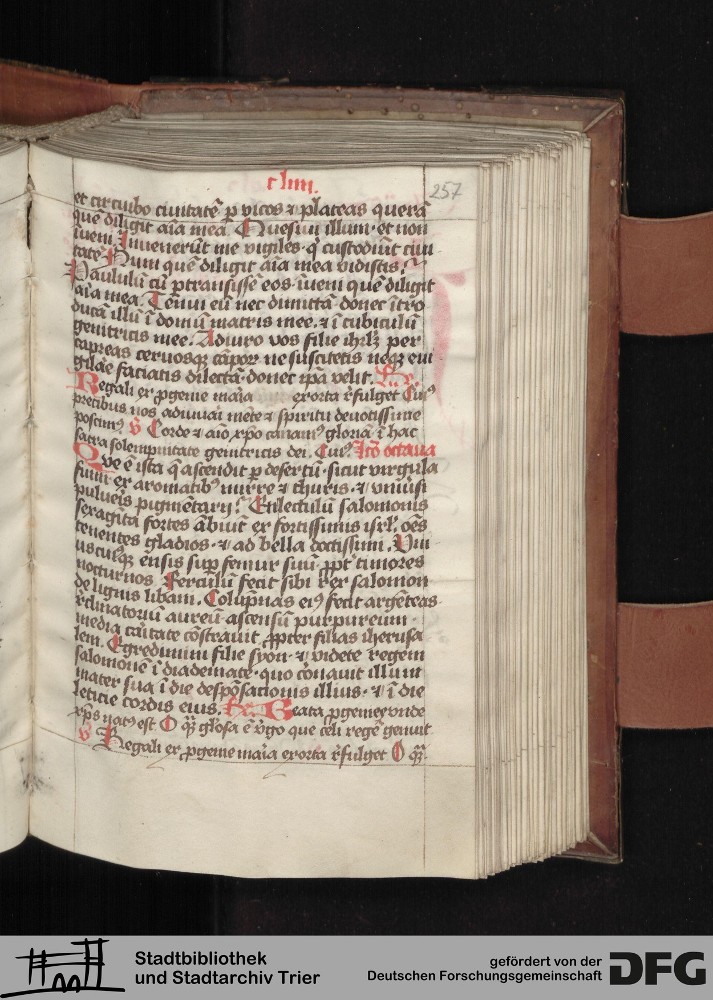 clıııı.
257
et circuibo ciuitatē p vicos ⁊ plateas querā
quē diligit aīa mea. Quesiui illum · et non
īueni. Inuenerūt me vigiles · q̇ custodiūt ciui
tatē. Num quē diligit aīa mea vidistis.
Paululū cū ptransissē eos · īueni quē diligit
aīa mea. Tenui eū nec dimittā donec ītro
ducā illū ī domū matris mee. ⁊ ī cubiculū
genitricis mee. Adiuro vos filie ihrlꝫ per
capreas ceruosqꝫ cāpoꝝ ne suscitetis neqꝫ eui
gilāe faciatis dilectā · donec ip̄a velit.
Regali ex ꝓgenie maīa exorta r̄fulget Cui⁹
precibus nos adiuuai mete ⁊ spiritu deuotissime
poscim⁹. v̄ Corde ⁊ aīo xp̄o canam⁹ gloriā ī hac
sacra solempnitate genitricis dei. Cui⁹. Ico octaua
Que ē ista q̄ ascendit p desertū · sicut virgula
fumi ex aromatib⁹ mirre ⁊ thuris · ⁊ vniūsi
pulueis pigmētarij. En lectulū salomonis
sexagīta fortes ābiūt ex fortissimis isrl̄. oēs
tenentes gladios · ⁊ ad bella doctissimi. Vni
uscuiꝰqꝫ ensis sup femur suū ꝓpt timores
nocturnos. Ferculū fecit sibi rex salomon
de lignis libani. Colūpnas ei⁹ fecit argēteas
r̄clinatoriū aureū ascensū purpureum ·
media caritate cōstrauit ꝓpter filias iherusa
lem. Egredimini filie syon · ⁊ videte regem
salomonē ī diademate · quo coīauit illum
mater sua ī die despōsacionis illius · ⁊ ī die
leticie cordis eius. Beata ꝓgenies vnde
xp̄s nat⁹ est. O q̄ꝫ glosa ē v̄go que celi regē genuit.
v̄ Regali ex ꝓgenie maīa exorta r̄fulget O q̄ꝫ.
Stadtbibliothek
und Stadtarchiv Trier
gefördert von der
Deutschen Forschungsgemeinschaft
DFG